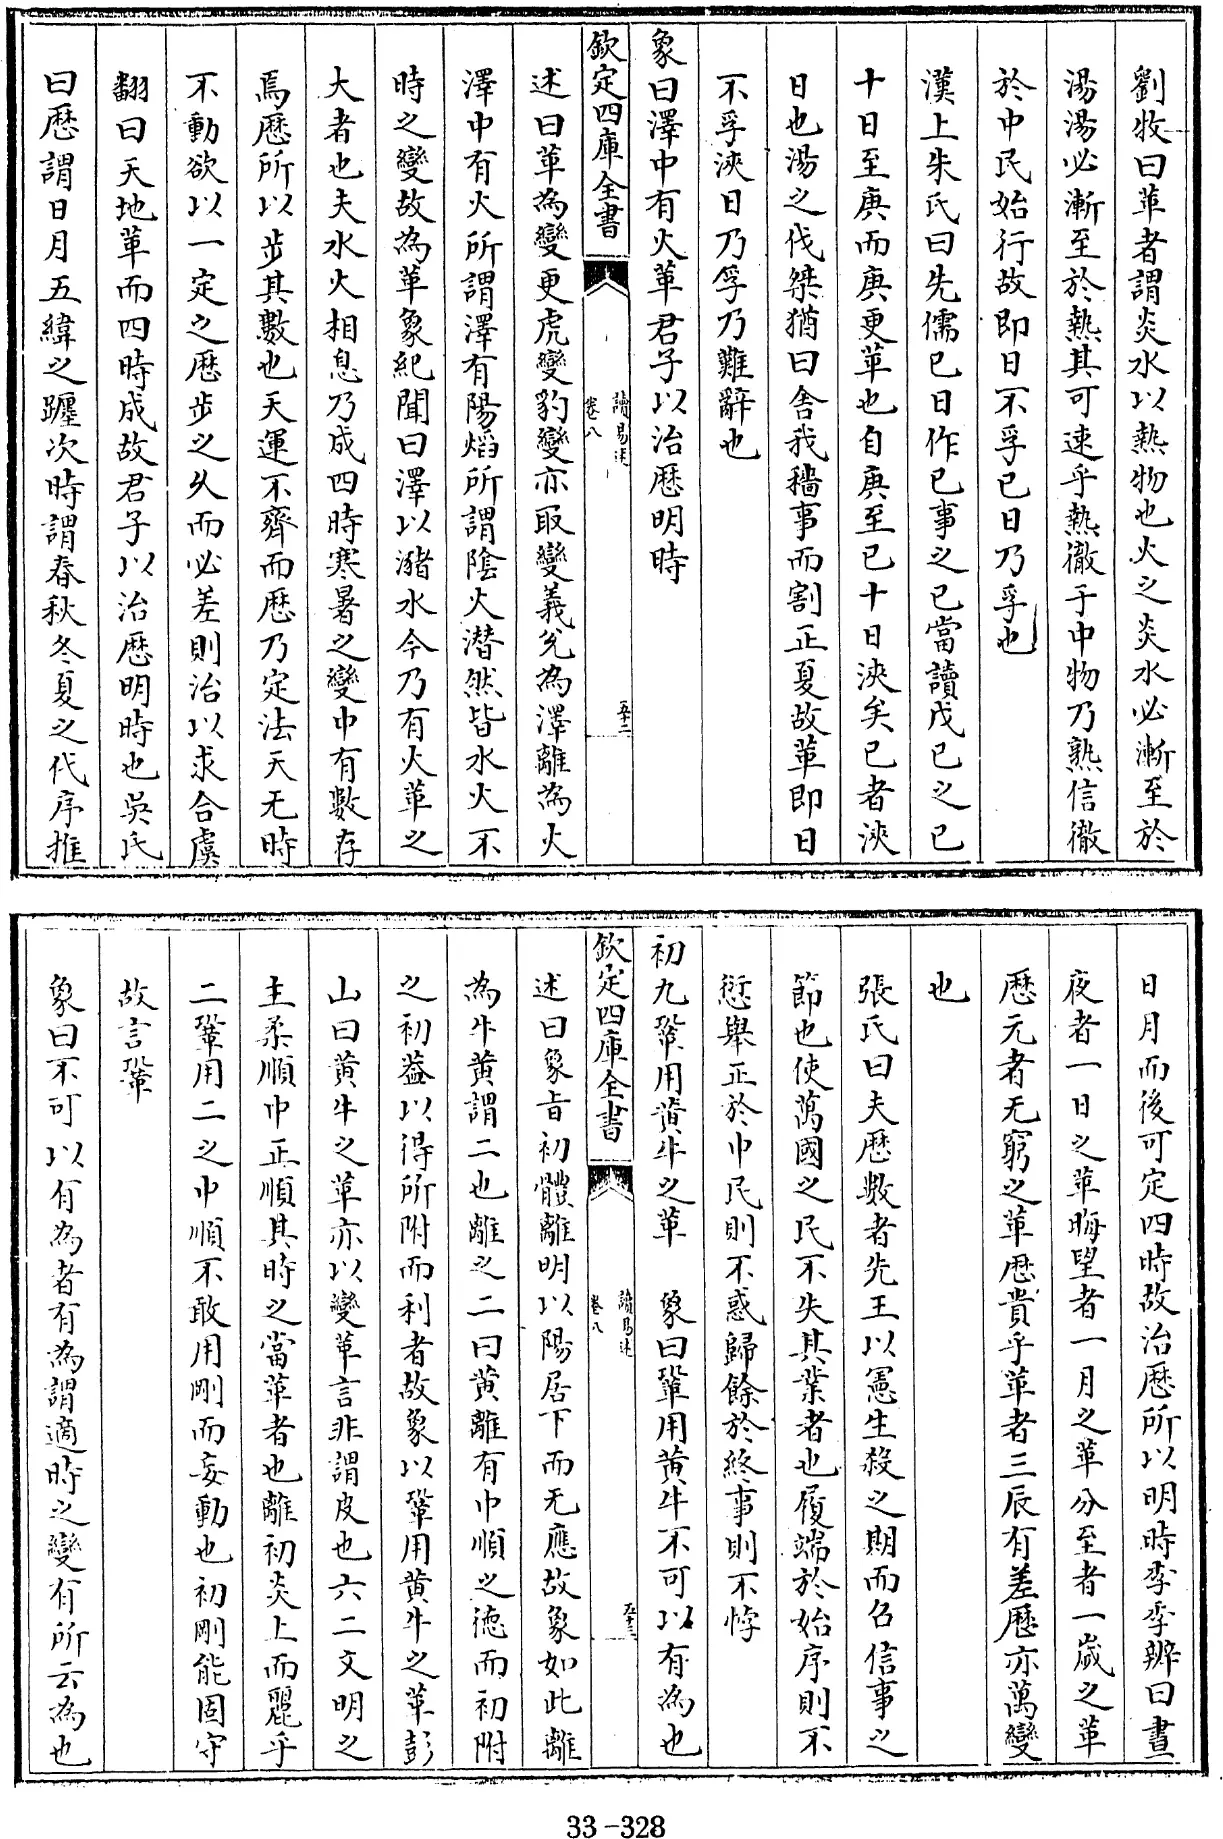 劉牧曰革者謂炎水以熱物也火之炎水必漸至於
湯湯必漸至於熱其可速乎熱徹于中物乃熟信徹
於中民始行故即日不孚已日乃孚也
漢上朱氏曰先儒已日作已事之已當讀戊己之己
十日至庚而庚更革也自庚至己十日浹矣己者浹
日也湯之伐桀猶曰舍我穡事而割正夏故革即日
不孚浹日乃孚乃難辭也
象曰澤中有火革君子以治歷明時
欽定四庫全書
讀易述
卷八
五十二
述曰革為變更虎變豹變亦取變義兌為澤離為火
澤中有火所謂澤有陽焰所謂陰火潛然皆水火不
時之變故為革象紀聞曰澤以瀦水今乃有火革之
大者也夫水火相息乃成四時寒暑之變中有數存
焉歷所以步其數也天運不齊而歷乃定法天无時
不動欲以一定之歷步之久而必差則治以求合虞
翻曰天地革而四時成故君子以治歷明時也吳氏
曰歷謂日月五緯之躔次時謂春秋冬夏之代序推
日月而後可定四時故治歷所以明時李季辨曰晝
夜者一日之革晦望者一月之革分至者一歲之革
歷元者无窮之革歷貴乎革者三辰有差歷亦萬變
也
張氏曰夫歷數者先王以憲生殺之期而召信事之
節也使萬國之民不失其業者也履端於始序則不
愆舉正於中民則不惑歸餘於終事則不悖
初九鞏用黃牛之革　象曰鞏用黃牛不可以有為也
欽定四庫全書
讀易述
卷八
五十三
述曰象旨初體離明以陽居下而无應故象如此離
為牛黃謂二也離之二曰黃離有中順之德而初附
之初益以得所附而利者故象以鞏用黃牛之革彭
山曰黃牛之革亦以變革言非謂皮也六二文明之
主柔順中正順其時之當革者也離初炎上而麗乎
二鞏用二之中順不敢用剛而妄動也初剛能固守
故言鞏
象曰不可以有為者有為謂適時之變有所云為也
33-328